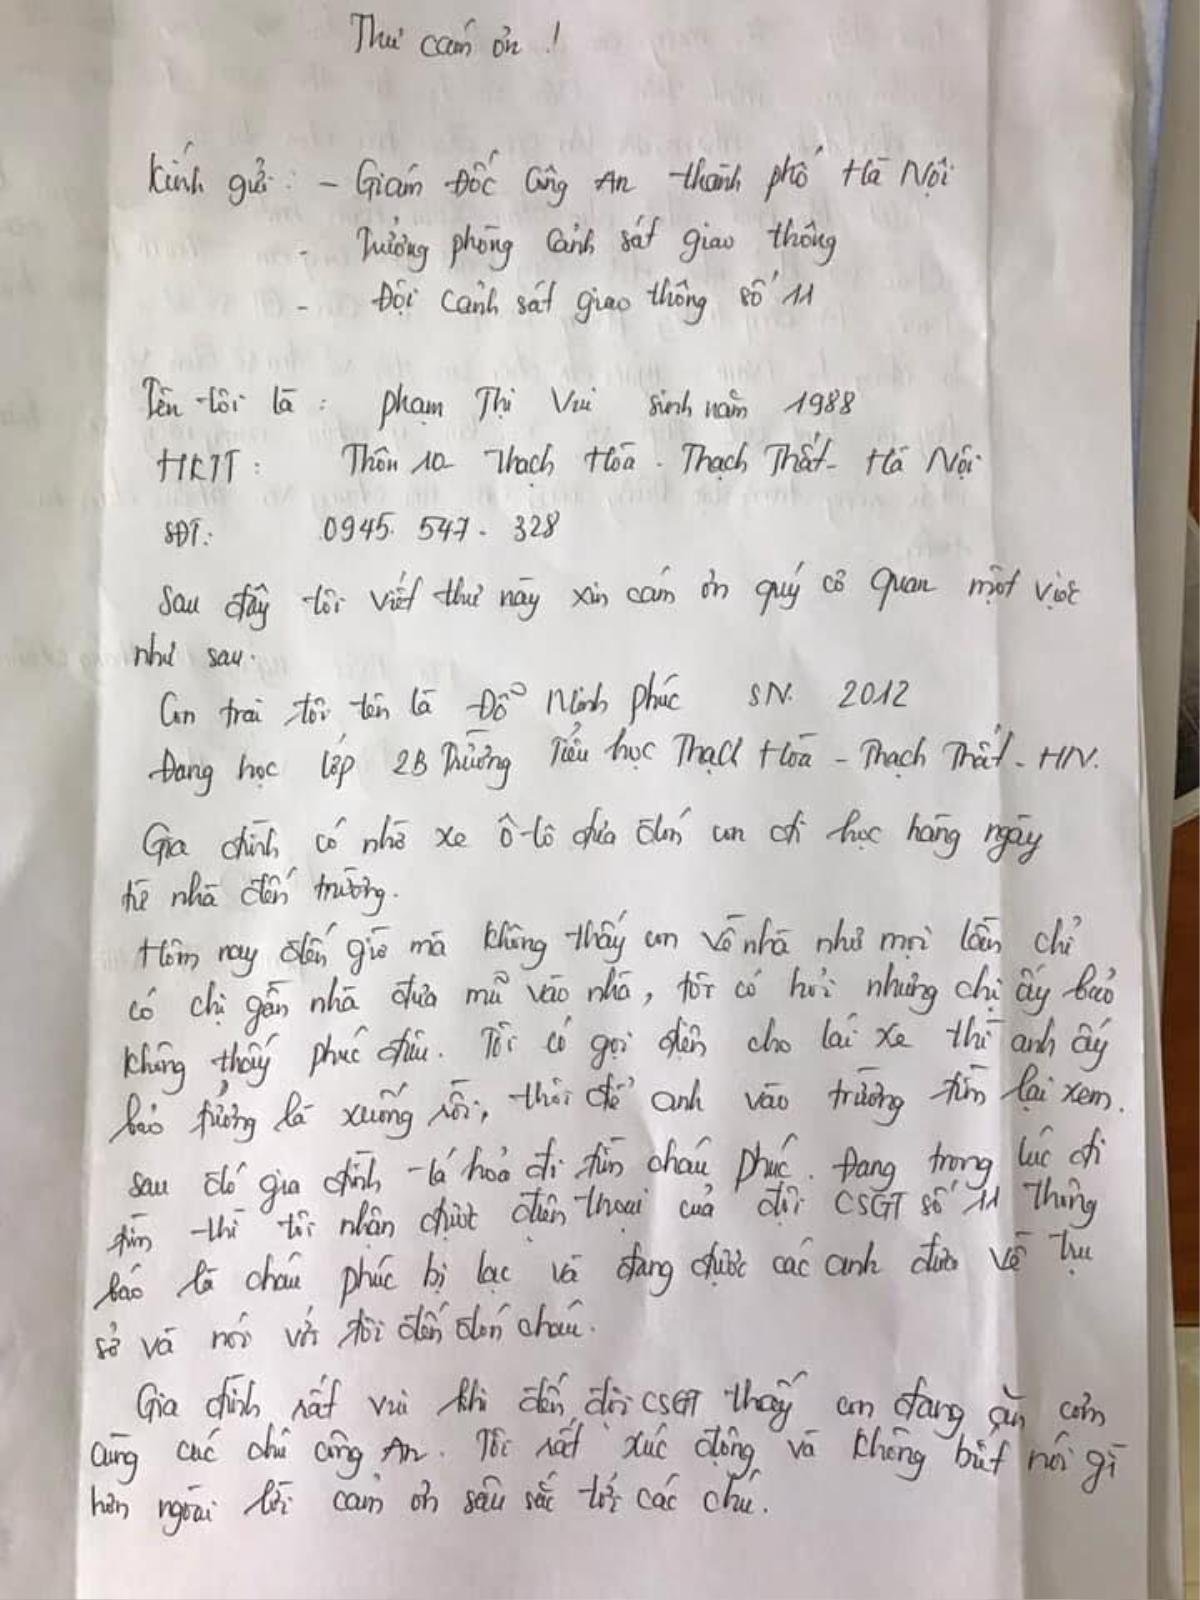 Thư cám ơn !
Kính gửi : - Giám Đốc Công An thành phố Hà Nội
- Trưởng phòng Cảnh sát giao thông
- Đội cảnh sát giao thông số 11
Tên tôi là : Phạm Thị Vui sinh năm 1988
HKTT : Thôn 10 - Thạch Hoà - Thạch Thất - Hà Nội
SĐT: 0945. 547. 328
Sau đây tôi viết thư này xin cám ơn quý cơ quan một việc
như sau.
Con trai tôi tên là Đỗ Minh Phúc SN. 2012
Đang học lớp 2B Trường Tiểu học Thạch Hoà - Thạch Thất - HN.
Gia đình có nhờ xe ô-tô đưa đón con đi học hàng ngày
từ nhà đến trường.
Hôm nay đến giờ mà không thấy con về nhà như mọi lần chỉ
có chị gần nhà đưa mũ vào nhà, tôi có hỏi nhưng chị ấy bảo
không thấy phúc đâu. Tôi có gọi điện cho lái xe thì anh ấy
bảo tưởng là xuống rồi, thôi để anh vào trường tìm lại xem.
sau đó gia đình tá hoả đi tìm cháu Phúc. Đang trong lúc đi
tìm thì tôi nhận được điện thoại của đội CSGT số 11 thông
báo là cháu phúc bị lạc và đang được các anh đưa về trụ
sở và nói với tôi đến đón cháu.
Gia đình rất vui khi đến đội CSGT thấy con đang ăn cơm
cùng các chú công An. Tôi rất xúc động và không biết nói gì
hơn ngoài lời cảm ơn sâu sắc tới các chú.